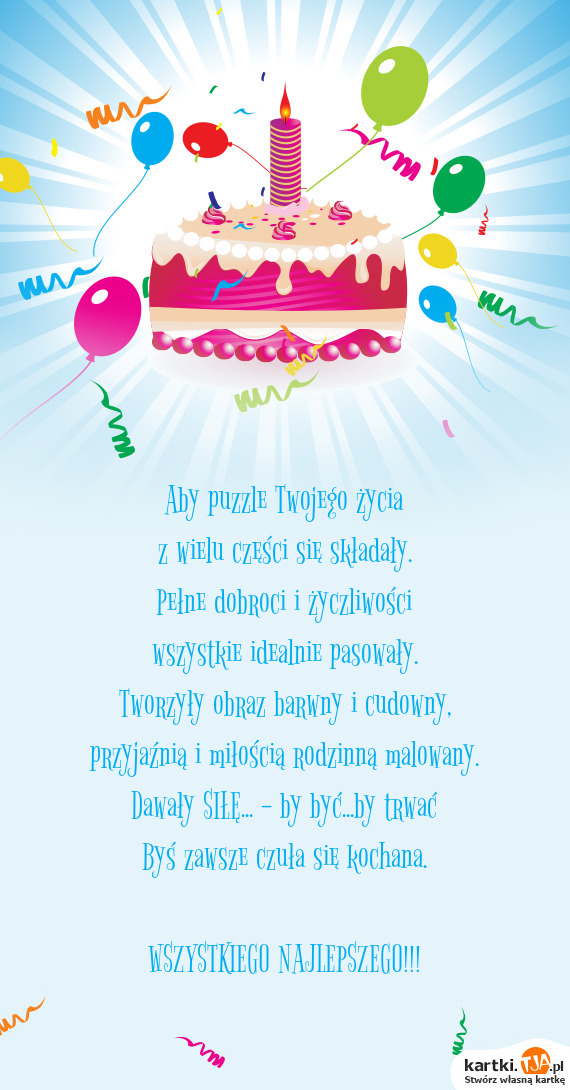 Aby puzzle Twojego życia
z wielu części się składały.
Pełne dobroci i życzliwości
wszystkie idealnie pasowały.
Tworzyły obraz barwny i cudowny,
przyjaźnią i miłością rodzinną malowany.
Dawały SIŁĘ... – by być...by trwać
Byś zawsze czuła się kochana.
WSZYSTKIEGO NAJLEPSZEGO!!!
kartki.TJA.pl
Stwórz własną kartkę